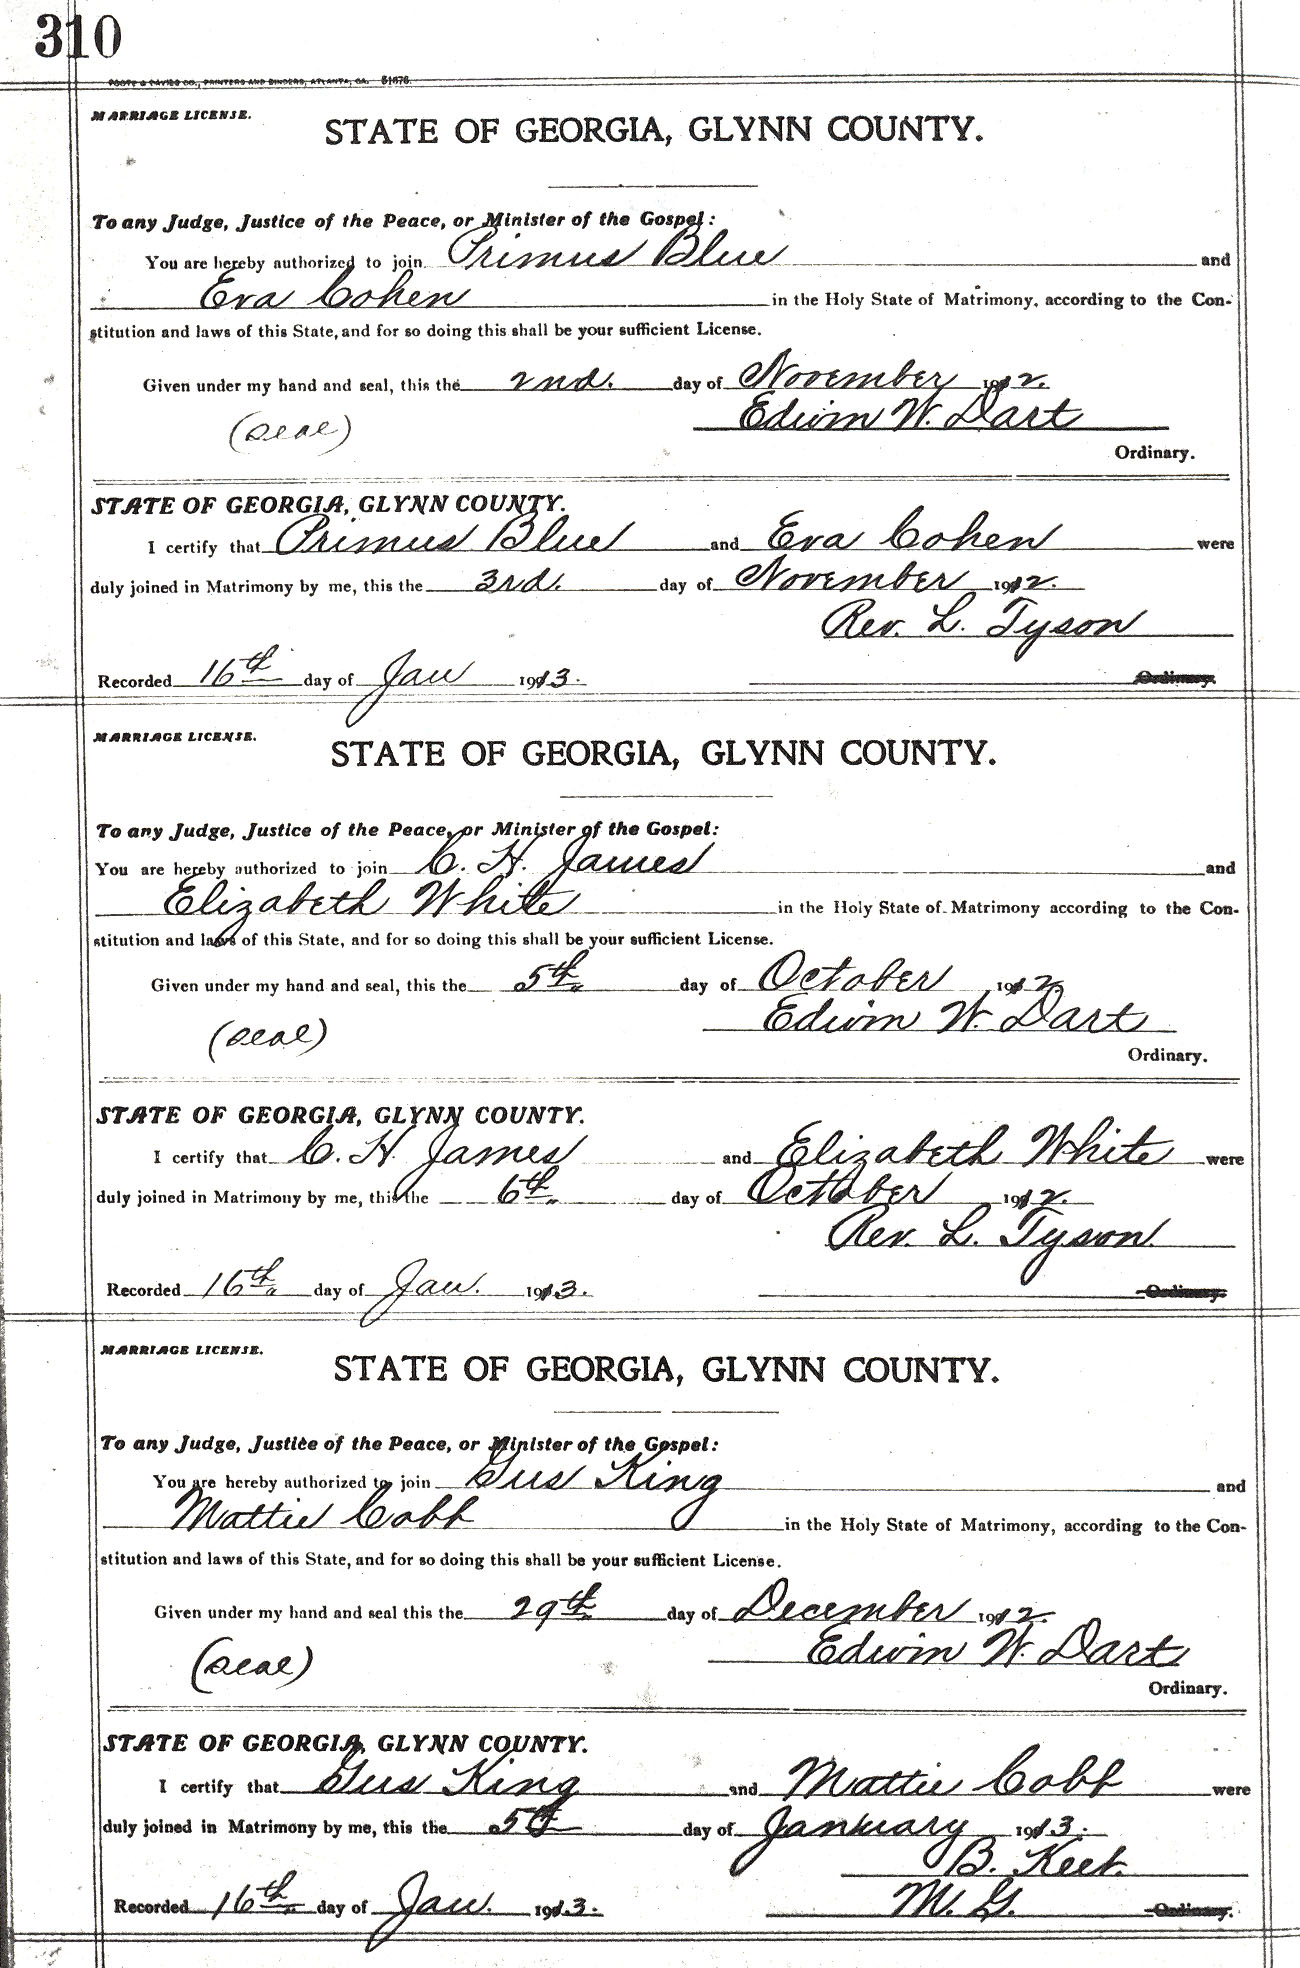 310
FOOTE & DAVIES CO., PRINTERS AND BINDERS, ATLANTA, GA. 51676
MARRIAGE LICENSE.
STATE OF GEORGIA, GLYNN COUNTY.
To any Judge, Justice of the Peace, or Minister of the Gospel:
You are hereby authorized to join Primus Blue and
Eva Cohen in the Holy State of Matrimony, according to the Con-
stitution and laws of this State, and for so doing this shall be your sufficient License.
Given under my hand and seal, this the 2nd. day of November 1912.
(seal) Edwin W. Dart
Ordinary.
STATE OF GEORGIA, GLYNN COUNTY.
I certify that Primus Blue and Eva Cohen were
duly joined in Matrimony by me, this the 3rd. day of November 1912.
Rev. L. Tyson
Recorded 16th day of Jan 1913. Ordinary.
MARRIAGE LICENSE.
STATE OF GEORGIA, GLYNN COUNTY.
To any Judge, Justice of the Peace, or Minister of the Gospel:
You are hereby authorized to join C. H. James and
Elizabeth White in the Holy State of Matrimony according to the Con-
stitution and laws of this State, and for so doing this shall be your sufficient License.
Given under my hand and seal, this the 5th day of October 1912.
(seal) Edwin W. Dart
Ordinary.
STATE OF GEORGIA, GLYNN COUNTY.
I certify that C. H. James and Elizabeth White were
duly joined in Matrimony by me, this the 6th day of October 1912.
Rev. L. Tyson.
Recorded 16th day of Jan. 1913. Ordinary.
MARRIAGE LICENSE.
STATE OF GEORGIA, GLYNN COUNTY.
To any Judge, Justice of the Peace, or Minister of the Gospel:
You are hereby authorized to join Gus King and
Mattie Cobb in the Holy State of Matrimony, according to the Con-
stitution and laws of this State, and for so doing this shall be your sufficient License.
Given under my hand and seal this the 29th day of December 1912.
(seal) Edwin W. Dart
Ordinary.
STATE OF GEORGIA, GLYNN COUNTY.
I certify that Gus King and Mattie Cobb were
duly joined in Matrimony by me, this the 5th day of January 1913.
B. Keet.
Recorded 16th day of Jan. 1913. M. G. Ordinary.